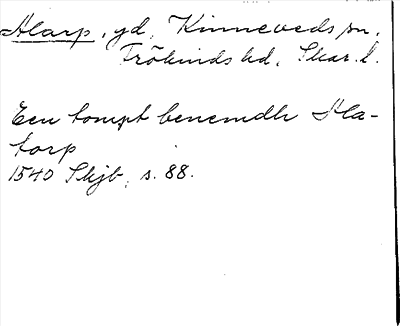 Alarp, gd, Kinneveds sn,
Frökinds hd, Skar. l.
Een tompt benemdh Ala-
torp
1540 Skjb, s. 88.